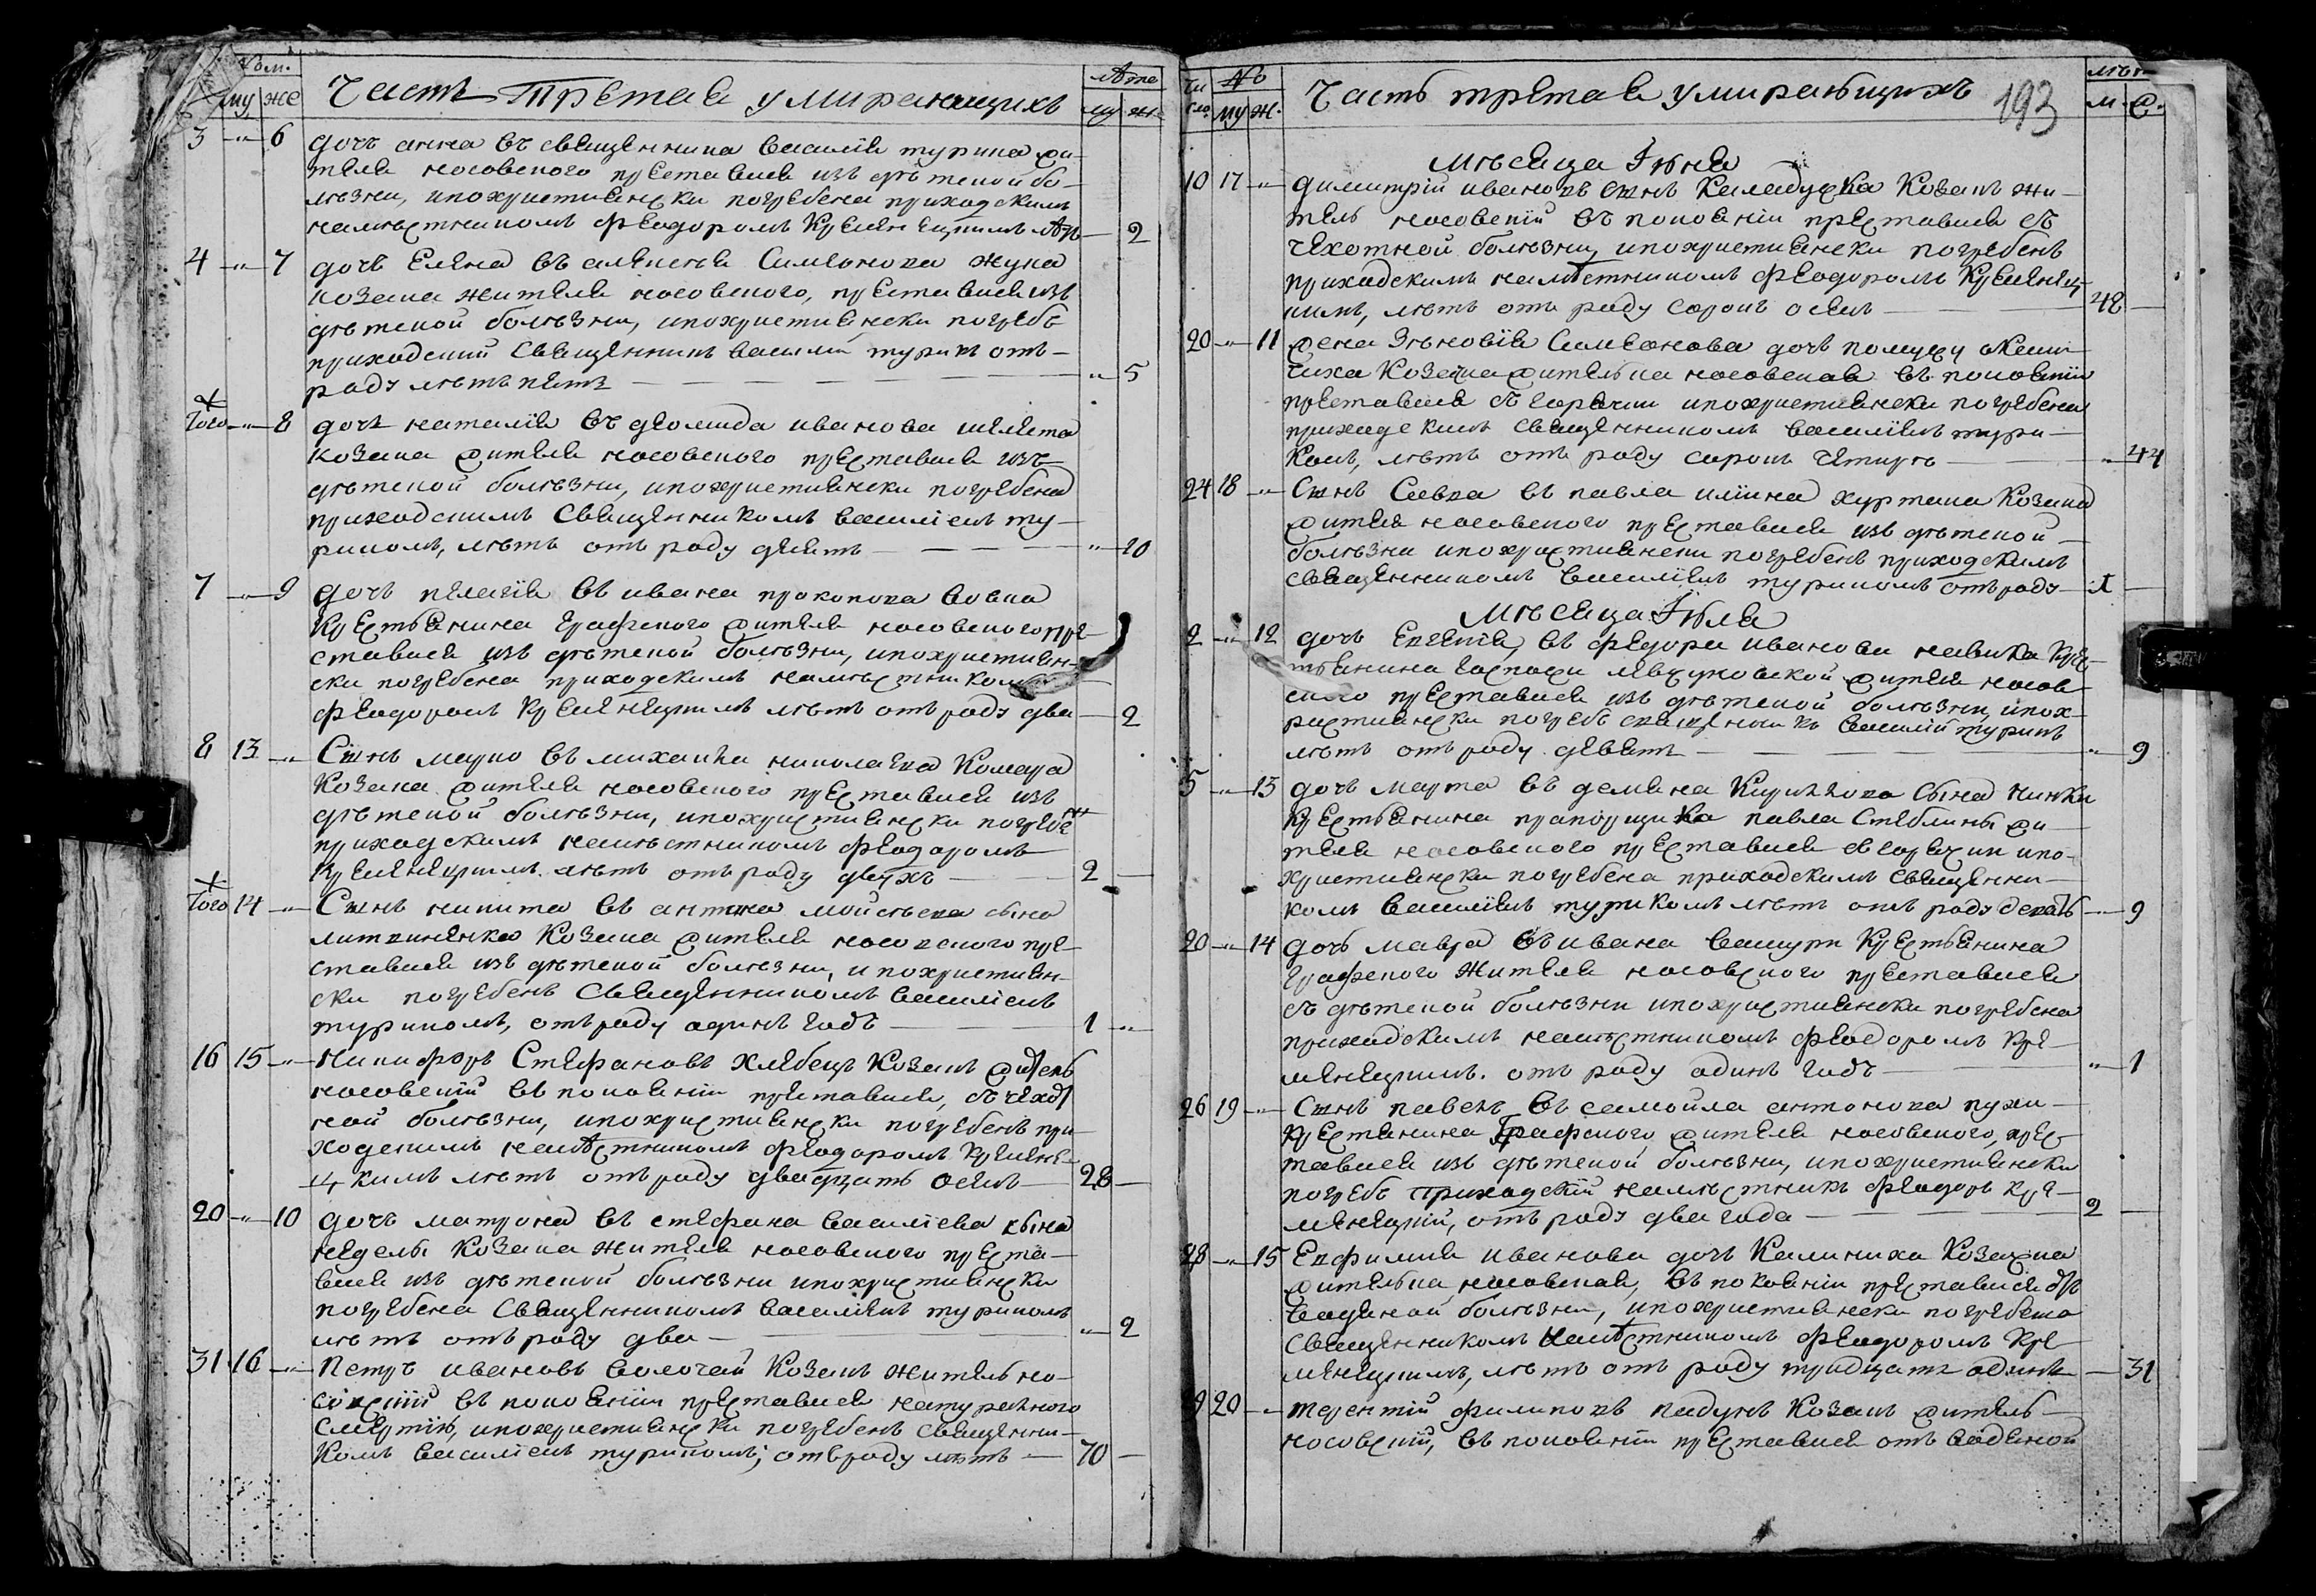 Ном.
му же
Часть Третая умирающихъ
лѣте
му ж.
3 „ 6 дочь анна въ священника василия турина жи-
теля носовского преставися изъ дѣтской бо-
лѣзни, ипохристиянски погребена приходскимъ
намѣстникомъ феодоромъ Кременецкимъ лѣтъ — 2
4 „ 7 дочь Елена въ алексѣя Симеонова жука
козака жителя носовского, преставися изъ
дѣтской болѣзни, ипохристиянски погребъ
приходский священникъ василий турикъ отъ —
роду лѣтъ пять — „ 5
Того „ 8 дочь наталия въ диомида иванова шелета
козака жителя носовского преставися изъ
дѣтской болѣзни, ипохристиянски погребена
приходскимъ священникомъ василиемъ ту-
рикомъ, лѣтъ отъ роду десять — „ 10
7 „ 9 дочь пелагия въ ивана прокопова вовка
крестьянина графского жителя носовского пре-
ставися изъ дѣтской болѣзни, ипохристиян-
ски погребена приходскимъ намѣстникомъ
феодоромъ Кременецкимъ лѣтъ отъ роду два — 2
8 13 „ Сынъ марко въ михаила николаева Комара
Козака жителя носовского преставися изъ
дѣтской болѣзни, ипохристиянски погребен
приходскимъ намѣстникомъ феодоромъ
Кременецкимъ. лѣтъ отъ роду двухъ — 2 —
Того 14 „ Сынъ никита въ антона мойсѣева сына
литвиненка Козака жителя носовского пре-
ставися изъ дѣтской болѣзни, ипохристиян-
ски погребенъ священникомъ василиемъ
турикомъ, отъ роду одинъ годъ — 1 „
16 15 „ Никифоръ Стефановъ хлебецъ Козакъ житель
носовский въ покояни преставися, съ чехот
ной болѣзни, ипохристиянски погребенъ при-
ходскимъ намѣстникомъ феодоромъ Кремене-
цкимъ лѣтъ отъ роду двадцать осемъ — 28 —
20 „ 10 дочь матрона въ стефана василиева сына
недели козака жителя носовского преста-
вися изъ дѣтской болѣзни ипохристиянски
погребена священникомъ василиемъ турикомъ
лѣтъ отъ роду два — „ 2
31 16 „ Петръ ивановъ волочай Козакъ житель но-
совский въ покоянии преставися натурального
смертию, ипохристиянски погребенъ священни-
комъ василиемъ турикомъ; отъ роду лѣтъ — 70 —
Чи
сло.
№
му ж.
Часть третая умирающихъ
193
лѣт
м. ж.
Мѣсяца Июня
10 17 „ димитрий ивановъ сынъ Каладуска Козакъ жи-
тель носовский въ покояни преставися съ
чехотной болѣзни, ипохристиянски погребенъ
приходскимъ намѣстникомъ феодоромъ Кременец-
кимъ, лѣтъ отъ роду сорокъ осемъ — 48 —
20 „ 11 жена Зѣновия Симеонова дочь по мужу
чиха Козачка жителька носовская въ покоянии
преставися съ горячки ипохристиянски погребена
приходскимъ священникомъ василиемъ тури-
комъ, лѣтъ отъ роду сорокъ четыре — „ 44
24 18 „ Сынъ Савка въ павла илиина хуртака Козака
жителя носовского преставися изъ дѣтской
болѣзни ипохристиянски погребенъ приходскимъ
священникомъ василиемъ турикомъ отъ роду — 1 —
Мѣсяца Июля
2 „ 12 дочь Евгения, въ федора иванова новика кре-
тьянина госпожи жителя носов
ского преставися изъ дѣтской болѣзни, ипох-
ристиянски погребъ священникъ василий турикъ
лѣтъ отъ роду девять — „ 9
5 „ 13 дочь марта въ демяна Кирилова сына
крестьянина прапорщика павла Стеблины жи-
теля носовского преставися въ горячки ипо-
християнски погребена приходскимъ священни-
комъ василиемъ турикомъ лѣтъ отъ роду девять — 9
20 „ 14 дочь мавра въ ивана вашури крестьянина
графского жителя носовского преставися
съ дѣтской болѣзни ипохристиянски погребена
приходскимъ намѣстникомъ феодоромъ Кре-
менецкимъ. отъ роду одинъ годъ — „ 1
26 19 „ Сынъ павелъ въ самойла антонова пухи —
крестянина графского жителя носовского, прес-
тавися изъ дѣтской болѣзни, ипохристиянски
погребъ приходский намѣстникъ феодоръ Кре-
менецкий, отъ роду два года — 2 —
28 „ 15 Евфимия иванова дочь Калиниха Козачка
жителька носовская, въ покояни преставися отъ
водяной болѣзни, ипохристиянски погребена
священникомъ намѣстникомъ феодоромъ Кре-
менецкимъ, лѣтъ отъ роду тридцать одинъ — 31
20 „ терентий филиповъ падунъ Козакъ житель
носовский, въ покояни преставися отъ водяной